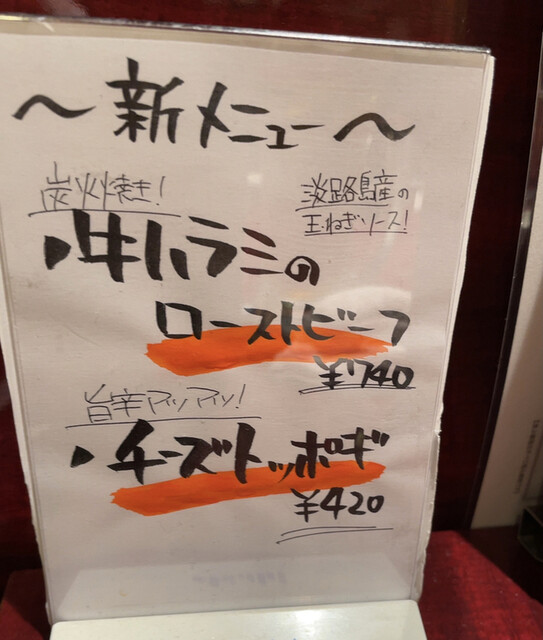 ～新メニュー～
炭火焼き!
淡路島産の
玉ねぎソース!
・牛ハラミの
ローストビーフ
¥740
旨辛アツアツ!
・チーズトッポギ
¥420